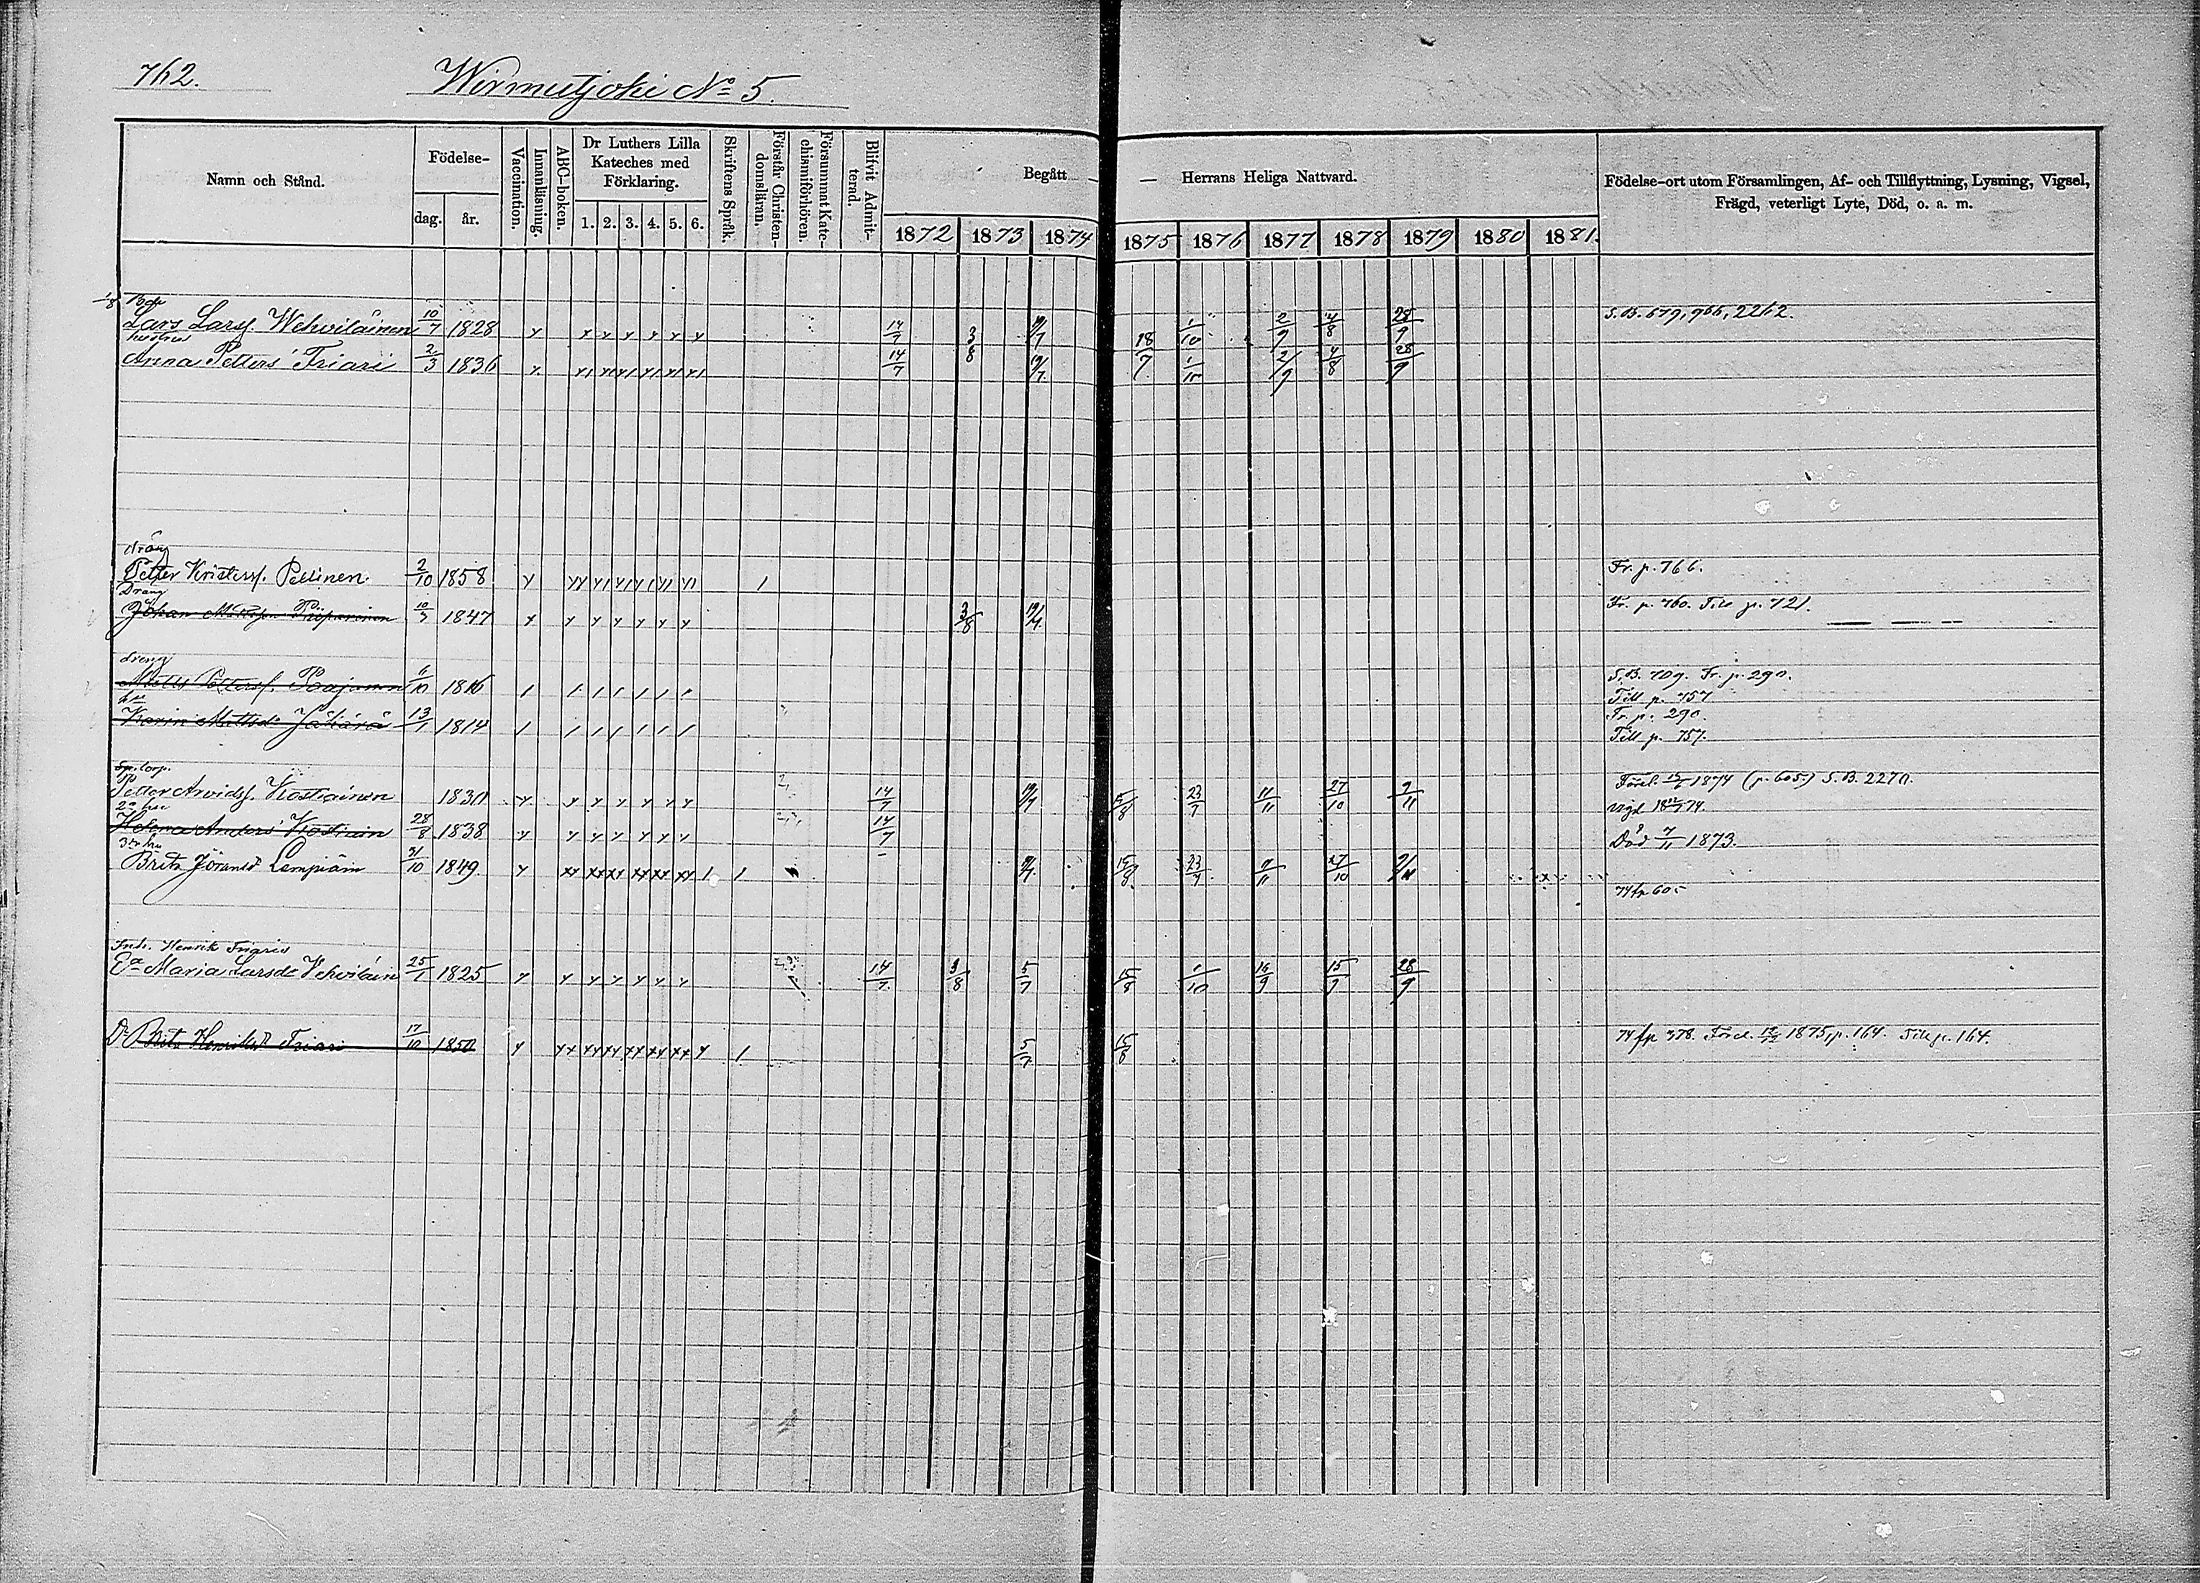 762.
Wirmutjoki No 5.
Namn och Stånd.
Födelse-
dag. år.
Vaccination.
Innanläsning.
ABC-boken.
Dr Luthers Lilla
Kateches med
Förklaring.
1. 2. 3. 4. 5. 6.
Skriftens Språk.
Förstår Christendomsläran.
Försummat Katechismiförhören.
Blifvit Admitterad.
Begått — — Herrans Heliga Nattvard.
1872 1873 1874 1875 1876 1877 1878 1879 1880 1881.
Födelse-ort utom Församlingen, Af- och Tillflyttning, Lysning, Vigsel,
Frägd, veterligt Lyte, Död, o. a. m.
Lars Larss. Wehviläinen 10/7 1828 14/7 3/8 19/7 18/7 1/10 2/9 4/8 28/9 S.B. 679, 966, 2262.
hustru
Anna Petters Friari 2/3 1836 14/7 19/7 1/10 2/9 4/8 28/9
dräng
Petter Kristerss. Pellinen 2/10 1858 Fr. p. 766.
Dräng
Johan Mattss. Piiparinen 10/3 1847 3/8 19/7 Fr. p. 760. Till p. 721.
dreng
Matts Peterss. Paajanen 6/10 1816 S.B. 709. Fr. p. 290.
Till p. 757
Karin Mattsdr 13/1 1814 Fr. p. 290.
Till p. 757.
Petter Arvidss. Kostiainen 1830 14/7 19/7 15/8 23/7 11/11 27/10 9/11 1874 (p. 605.) S.B. 2270.
2a hu
Helena Anders Kostiain 28/8 1838 14/7 Död 7/11 1873.
3dje hu
Brita Göransdr Lempiäin 31/10 1849. 19/7 15/8 23/7 11/11 27/10 9/11
74 fr 605
Inh. Henrik Friaris
Ea Maria Larsdr Vehviläin 25/1 1825 14/7 3/8 5/7 15/8 1/10 16/9 15/9 28/9
Dr Brita Henriksdr Friari 17/10 1850 5/7 15/8 74 fp 378. 1875, p. 164. Till p. 164.